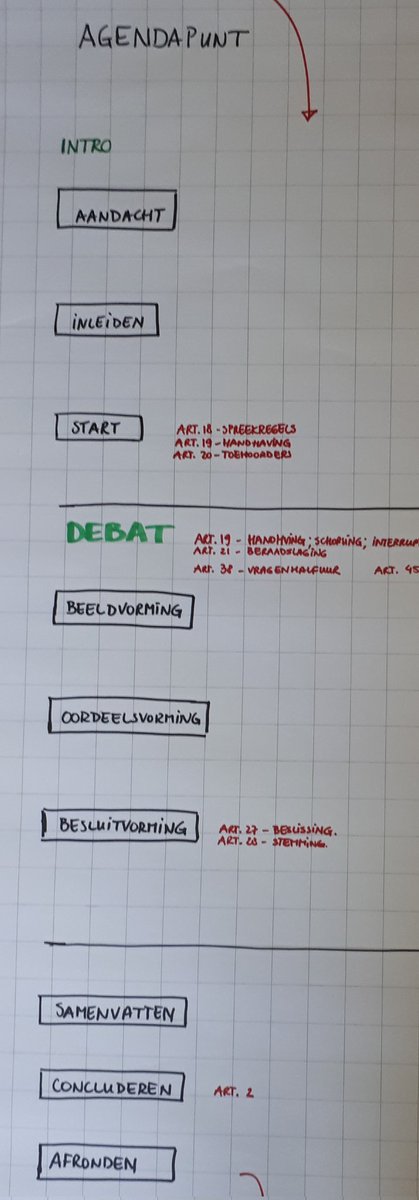 AGENDAPUNT
INTRO
AANDACHT
INLEIDEN
START
ART. 18 - SPREEKREGELS
ART. 19 - HANDHAVING
ART. 20 - TOEHOORDERS
DEBAT
ART. 19 - HANDHVING; SCHORSING; INTERRUPT
ART. 21 - BERAADSLAGING
ART. 38 - VRAGENHALFUUR ART. 45
BEELDVORMING
OORDEELSVORMING
BESLUITVORMING
ART. 27 - BESLISSING.
ART. 28 - STEMMING.
SAMENVATTEN
CONCLUDEREN
ART. 2
AFRONDEN